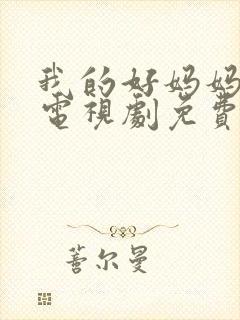 我的好妈妈
電視劇免費
蓍尔曼